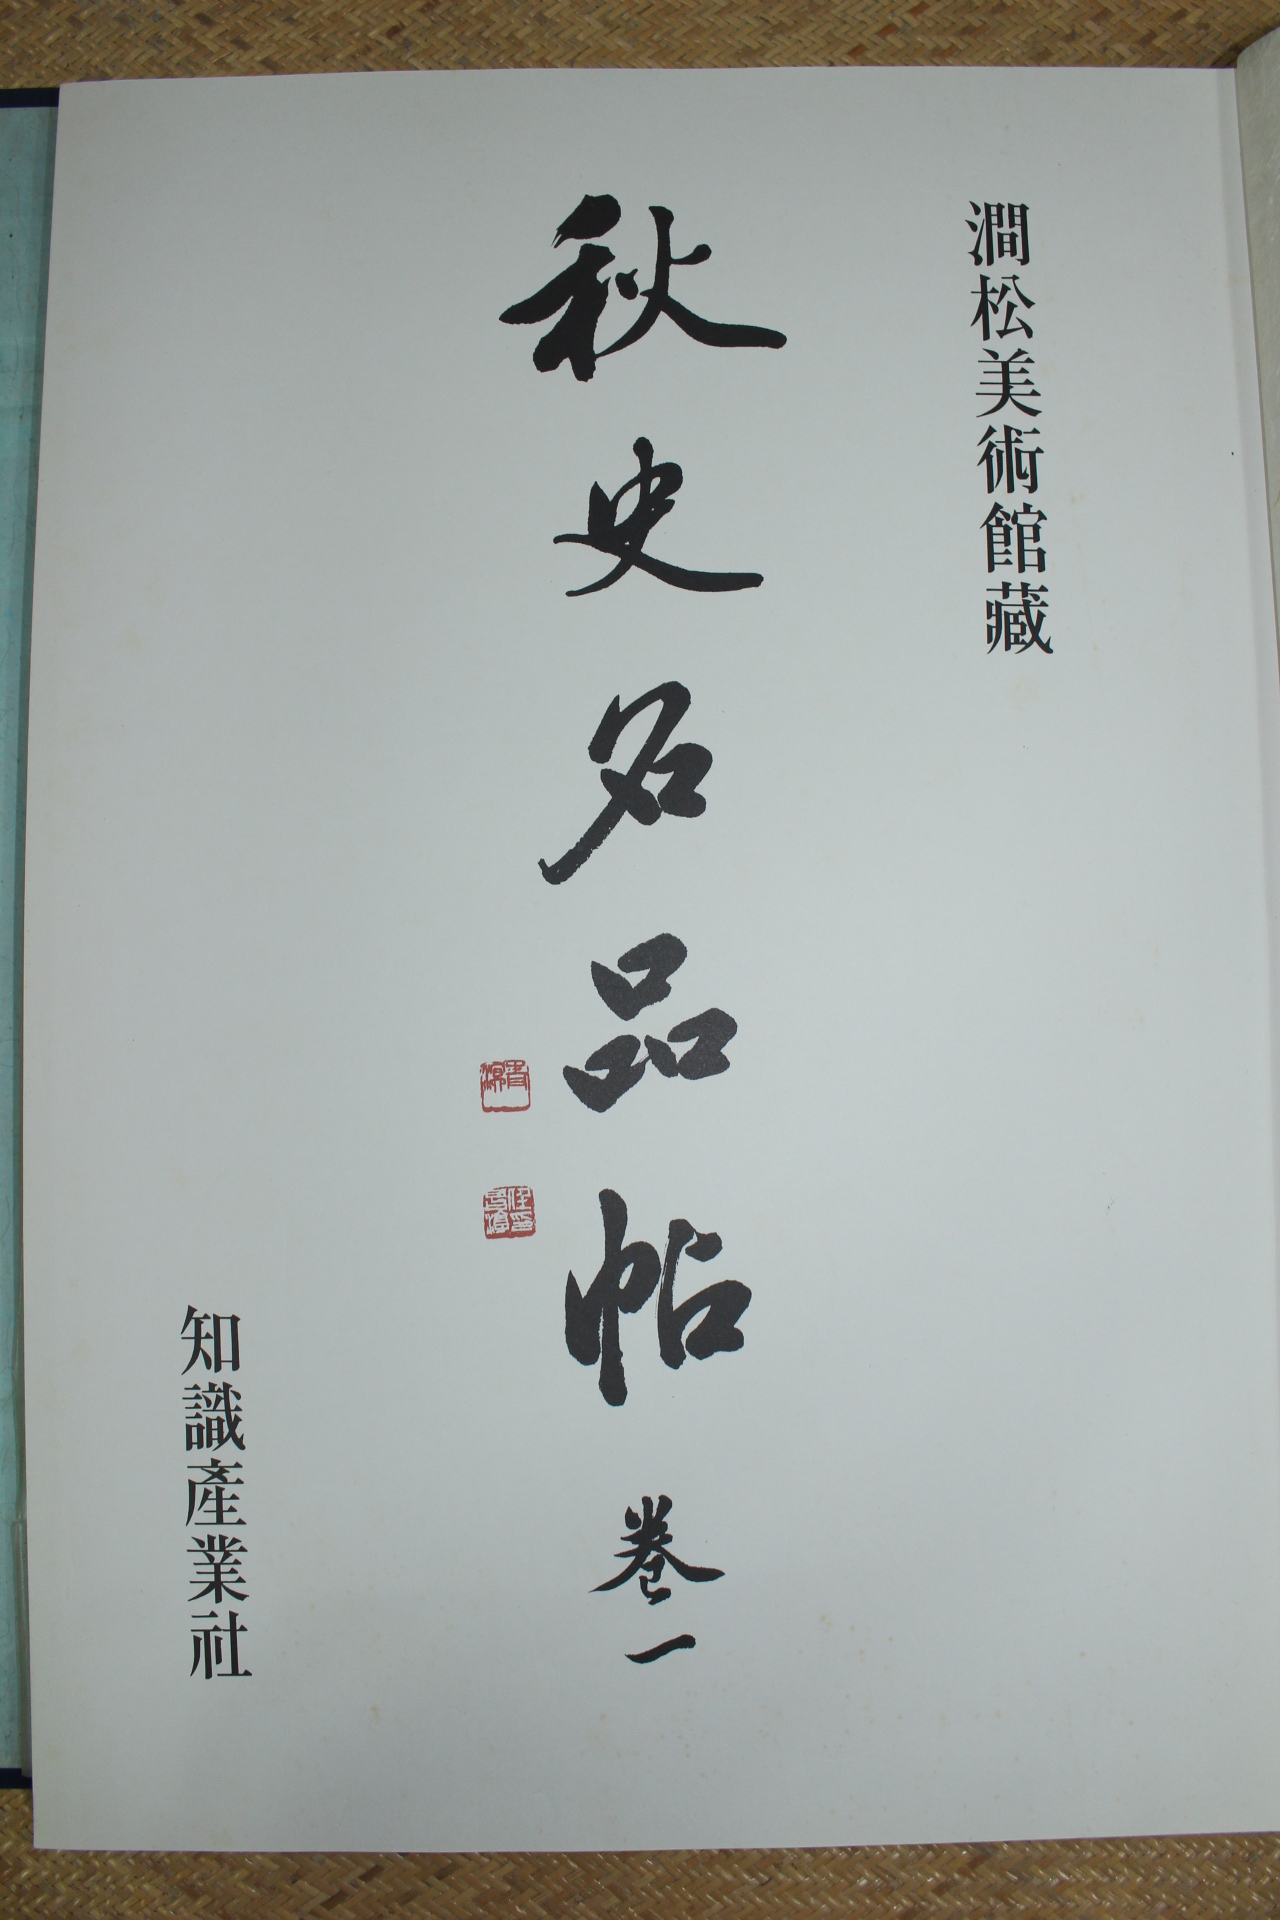 澗松美術館藏
秋史名品帖 卷一
知識產業社